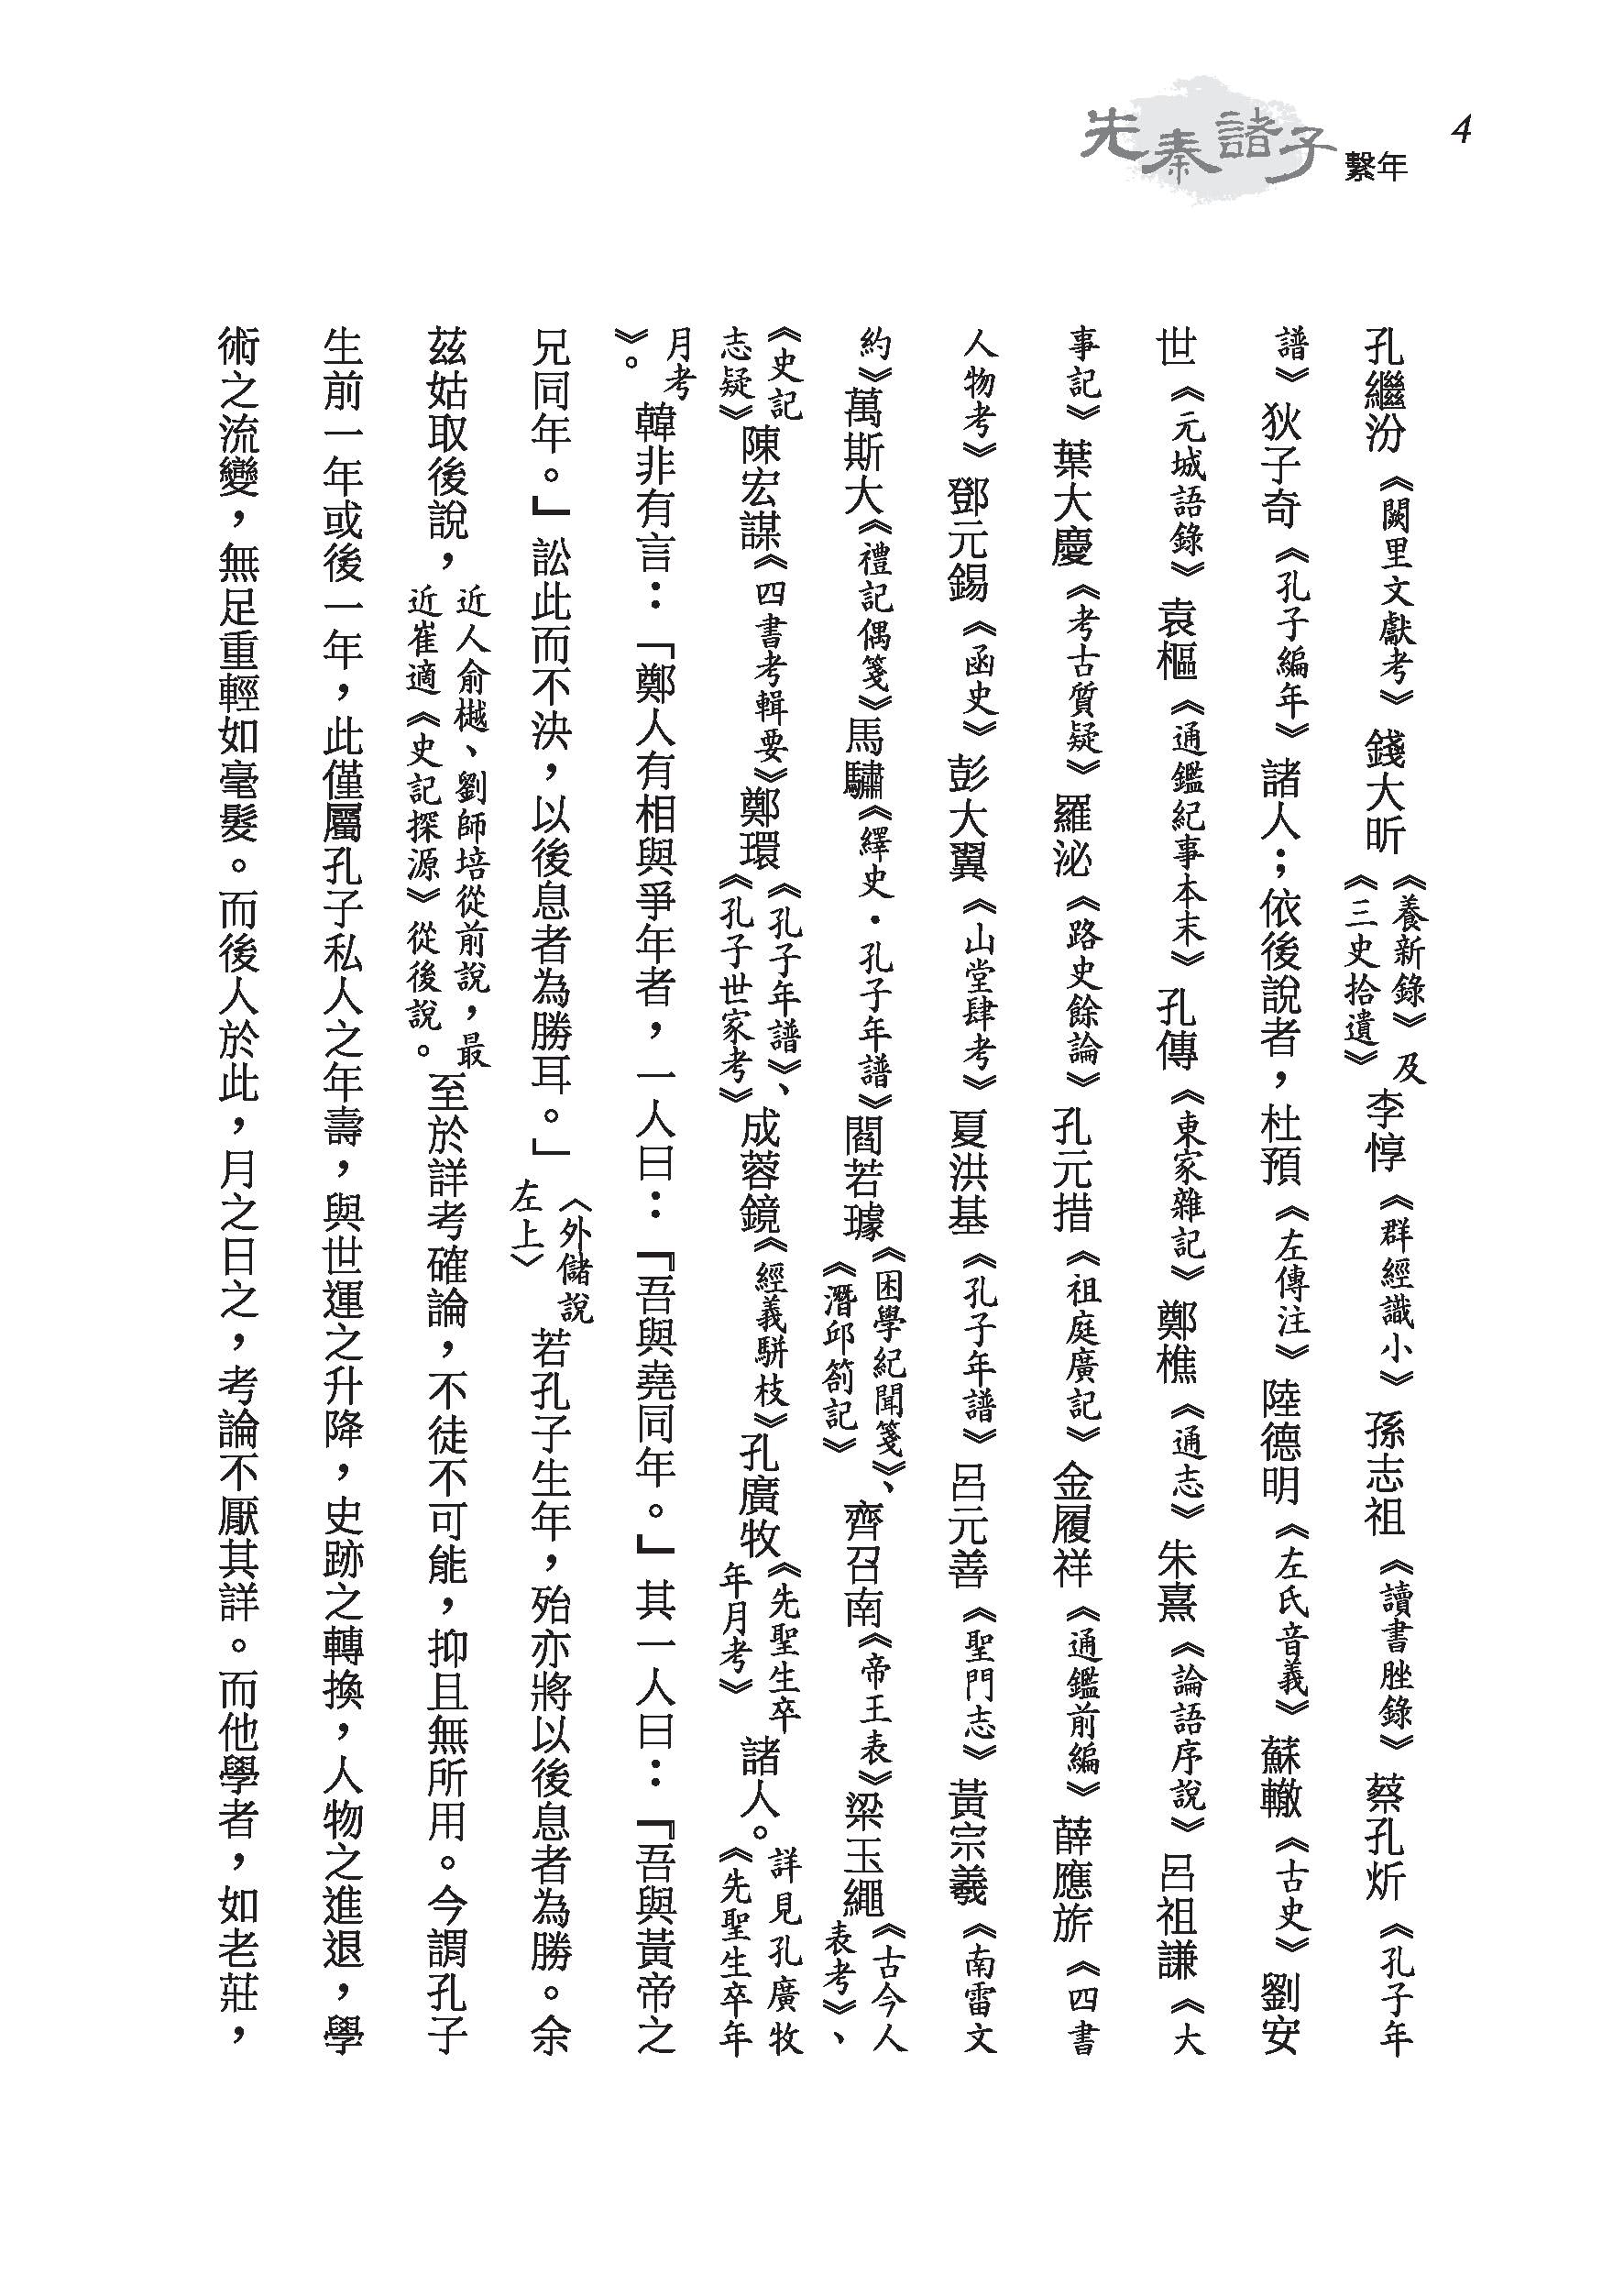 4
先秦諸子繫年
孔繼汾《闕里文獻考》錢大昕《養新錄》及《三史拾遺》李惇《群經識小》孫志祖《讀書脞錄》蔡孔炘《孔子年
譜》狄子奇《孔子編年》諸人；依後說者，杜預《左傳注》陸德明《左氏音義》蘇轍《古史》劉安
世《元城語錄》袁樞《通鑑紀事本末》孔傳《東家雜記》鄭樵《通志》朱熹《論語序說》呂祖謙《大
事記》葉大慶《考古質疑》羅泌《路史餘論》孔元措《祖庭廣記》金履祥《通鑑前編》薛應旂《四書
人物考》鄧元錫《函史》彭大翼《山堂肆考》夏洪基《孔子年譜》呂元善《聖門志》黃宗羲《南雷文
約》萬斯大《禮記偶箋》馬驌《繹史．孔子年譜》閻若璩《困學紀聞箋》、《潛邱劄記》齊召南《帝王表》梁玉繩《古今人表考》、
《史記志疑》陳宏謀《四書考輯要》鄭環《孔子年譜》、《孔子世家考》成蓉鏡《經義駢枝》孔廣牧《先聖生卒年月考》諸人。詳見孔廣牧《先聖生卒年
月考》。韓非有言：「鄭人有相與爭年者，一人曰：『吾與堯同年。』其一人曰：『吾與黃帝之
兄同年。』訟此而不決，以後息者為勝耳。」〈外儲說左上〉若孔子生年，殆亦將以後息者為勝。余
茲姑取後說，近人俞樾、劉師培從前說，最近崔適《史記探源》從後說。至於詳考確論，不徒不可能，抑且無所用。今謂孔子
生前一年或後一年，此僅屬孔子私人之年壽，與世運之升降，史跡之轉換，人物之進退，學
術之流變，無足重輕如毫髮。而後人於此，月之日之，考論不厭其詳。而他學者，如老莊，